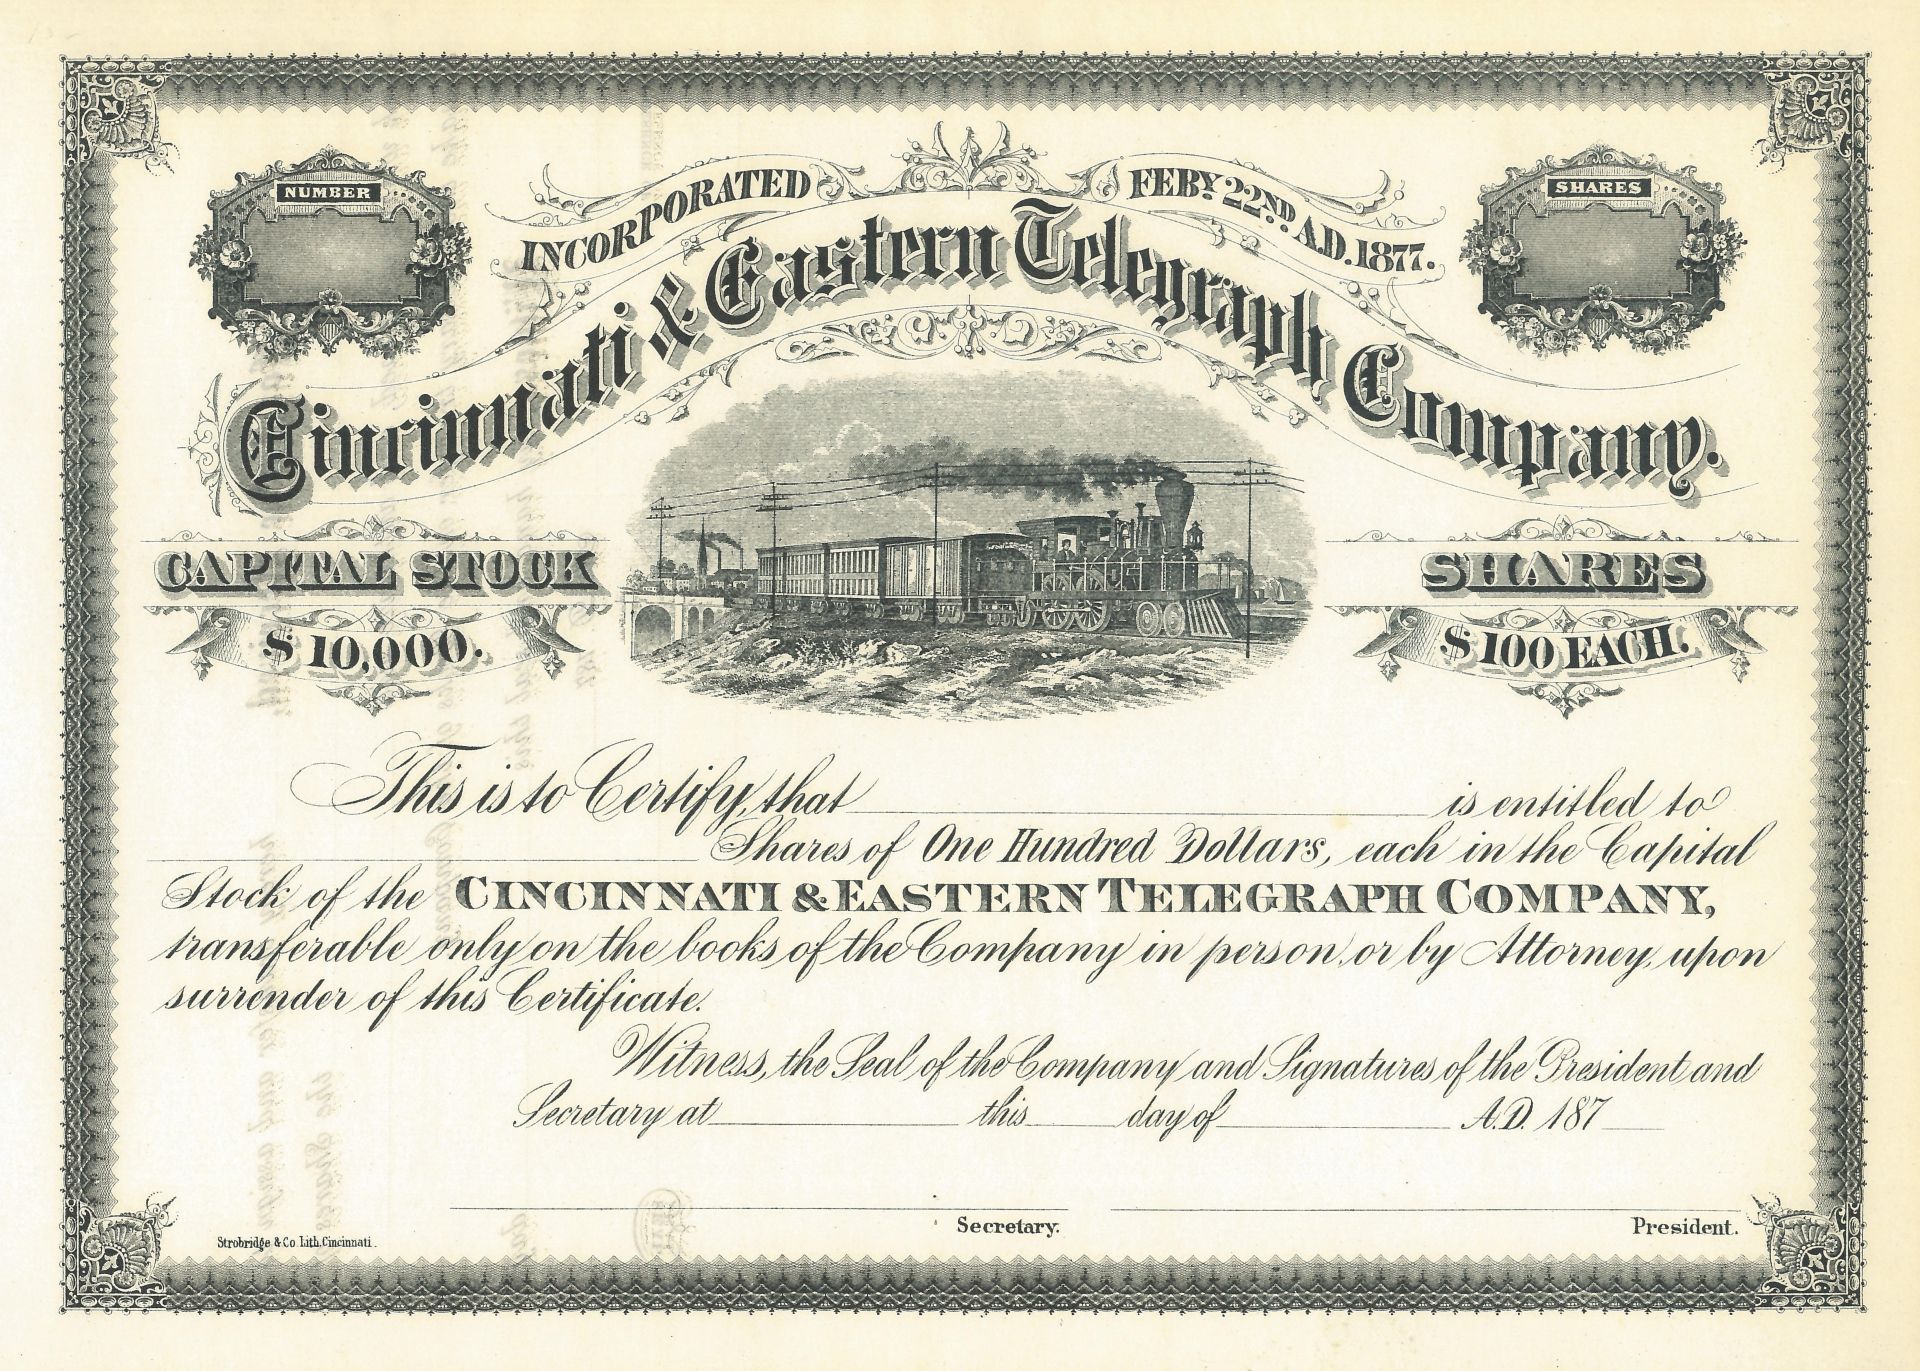 NUMBER
SHARES
INCORPORATED FEBY. 22ND. A.D. 1877.
Cincinnati & Eastern Telegraph Company.
CAPITAL STOCK
$10,000.
SHARES
$100 EACH.
This is to Certify, that is entitled to
Shares of One Hundred Dollars, each in the Capital
Stock of the CINCINNATI & EASTERN TELEGRAPH COMPANY,
transferable only on the books of the Company in person, or by Attorney, upon
surrender of this Certificate.
Witness, the Seal of the Company and Signatures of the President and
Secretary at this day of A.D. 187
Secretary.
President.
Strobridge & Co. Lith. Cincinnati.